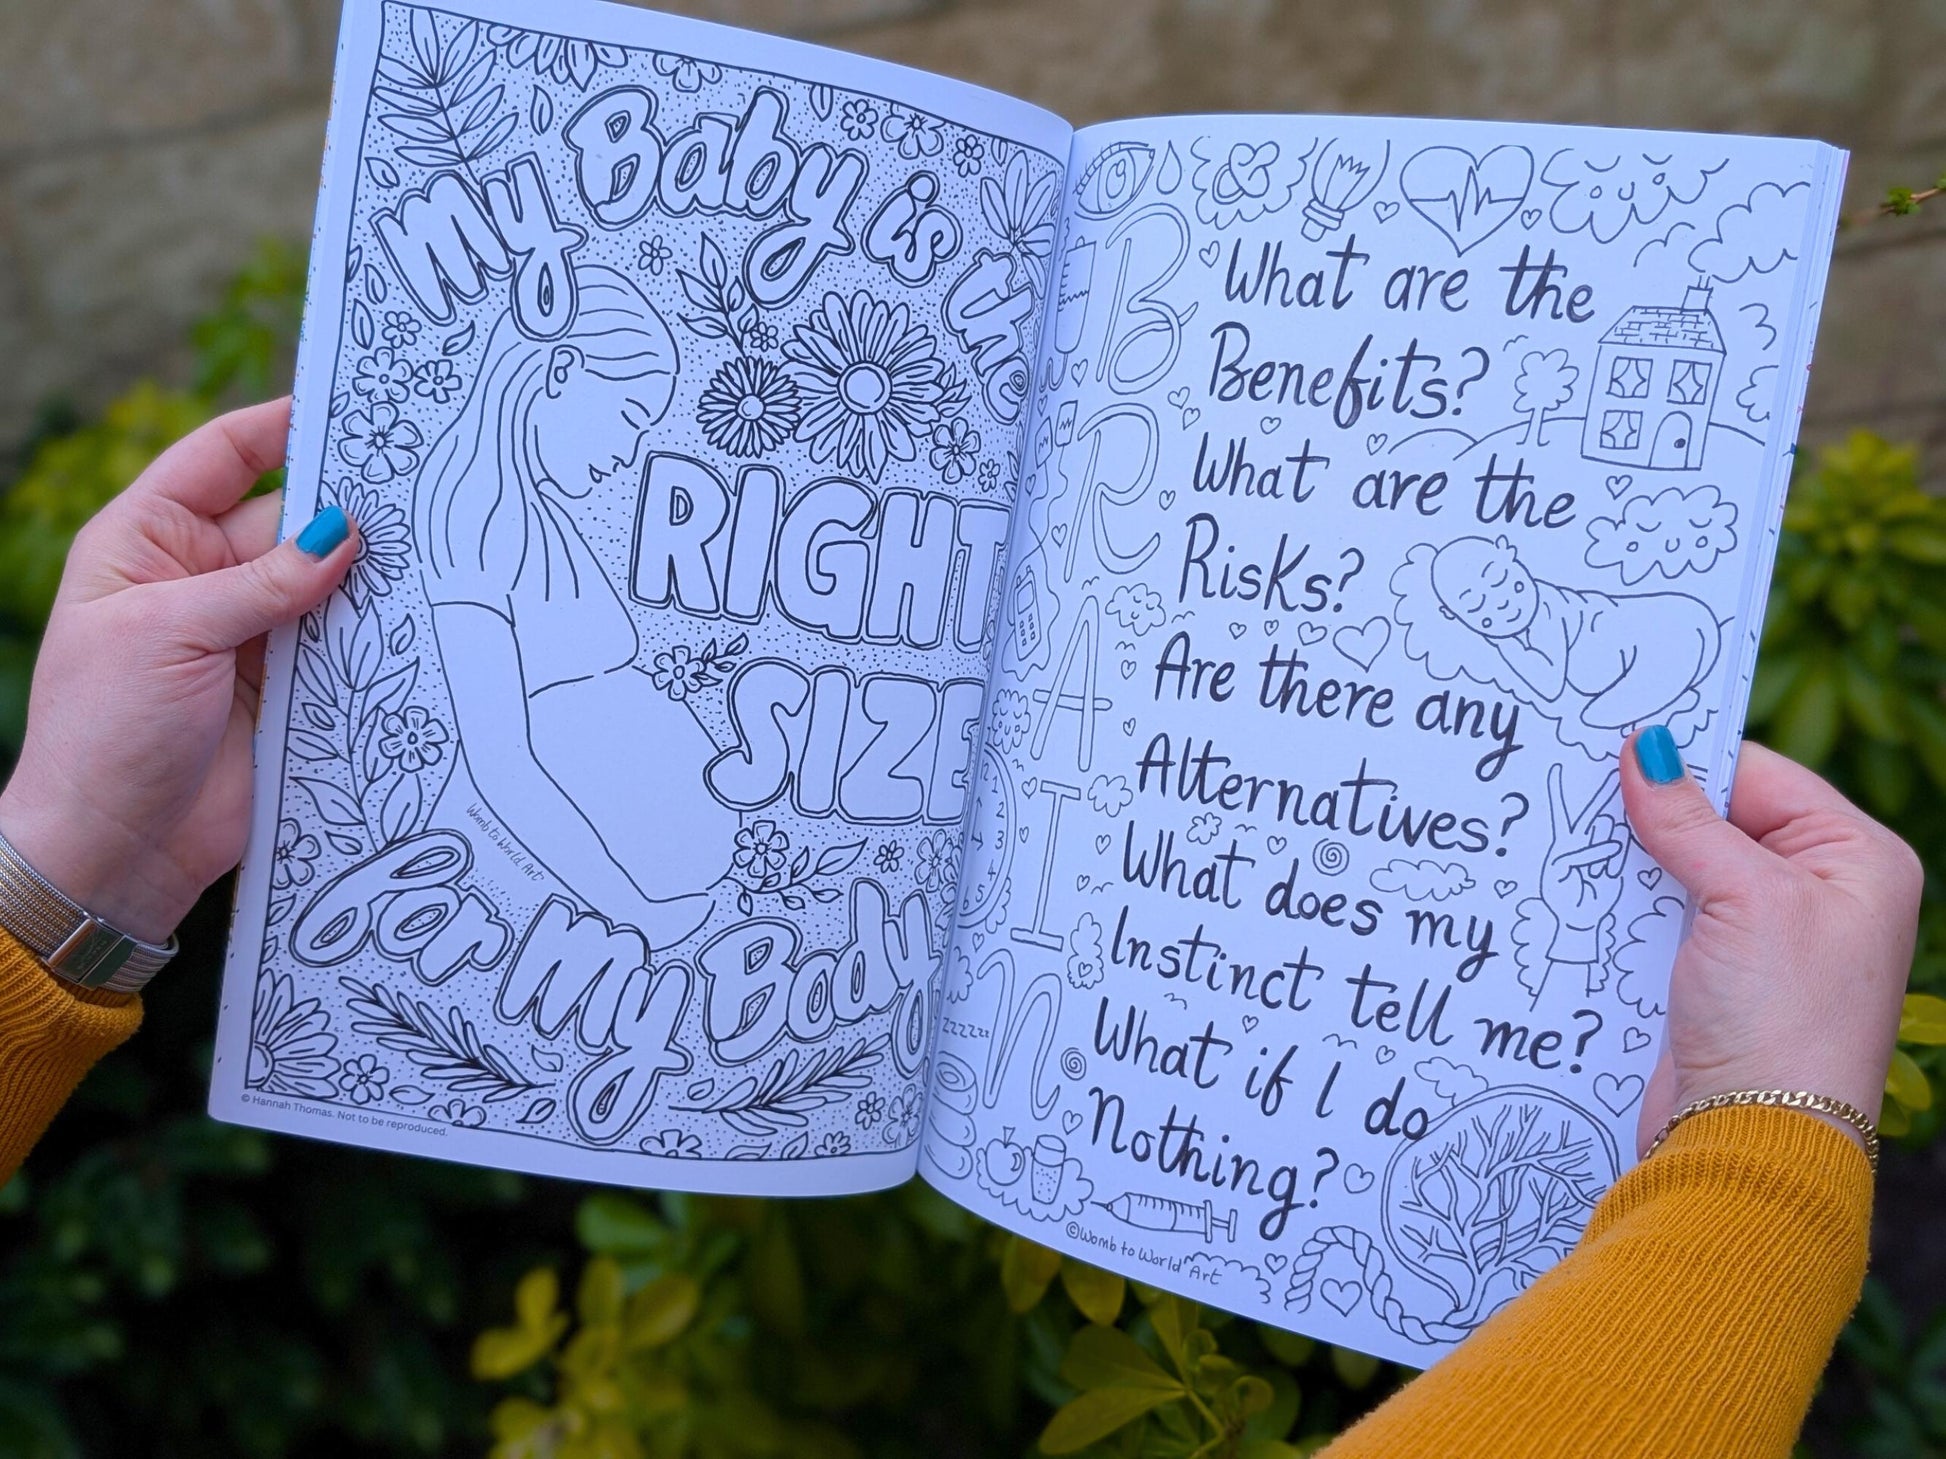 My Baby is the
RIGHT
SIZE
for My Body
Womb to World Art
© Hannah Thomas. Not to be reproduced.
B
R
A
I
N
What are the
Benefits?
What are the
Risks?
Are there any
Alternatives?
What does my
Instinct tell me?
What if I do
Nothing?
12
1
2
3
4
5
zzzzzz
©Womb to World Art